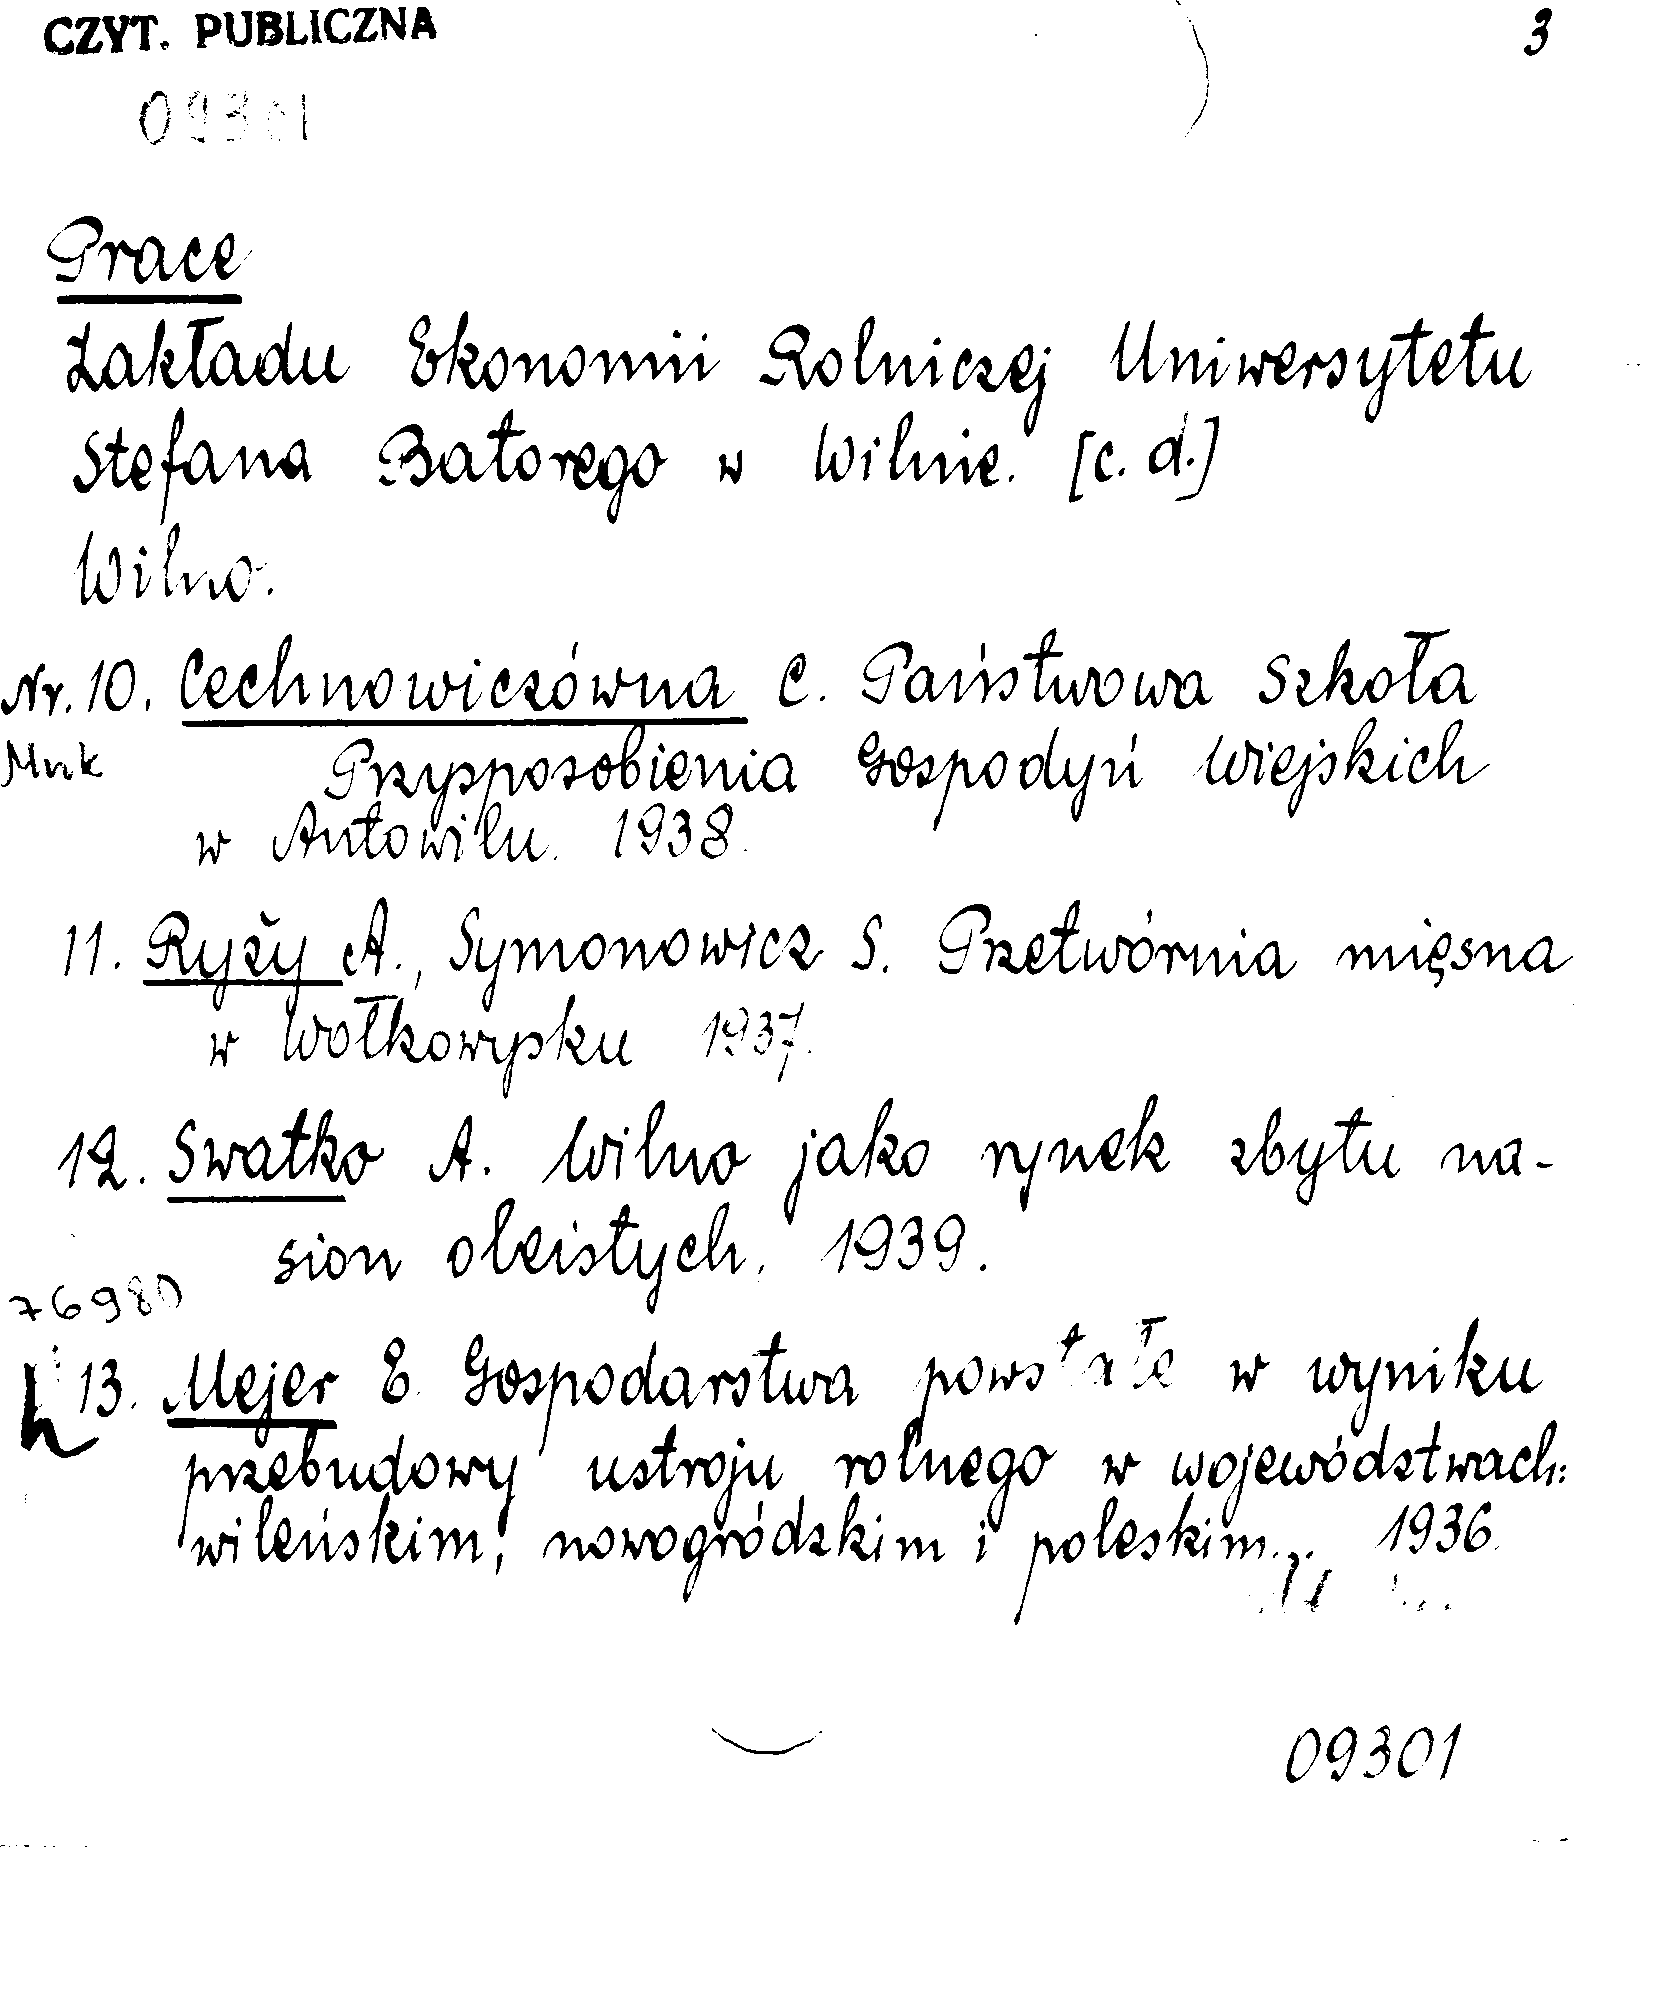 CZYT. PUBLICZNA 3
09301
Prace
Zakładu Ekonomii Rolniczej Uniwersytetu
Stefana Batorego w Wilnie. [c. d.]
Wilno.
Nr. 10. Czechnowiczówna C. Państwowa Szkoła
Mnk Przysposobienia Gospodyń Wiejskich
w Antowilu. 1938.
11. Ryży A., Symonowicz S. Przetwórnia mięsna
w Wołkowysku 1937.
12. Swatko A. Wilno jako rynek zbytu na-
sion oleistych. 1939.
76980
13. Mejer E. Gospodarstwa powstałe w wyniku
przebudowy ustroju rolnego w województwach:
wileńskim, nowogródzkim i poleskim. 1936.
09301